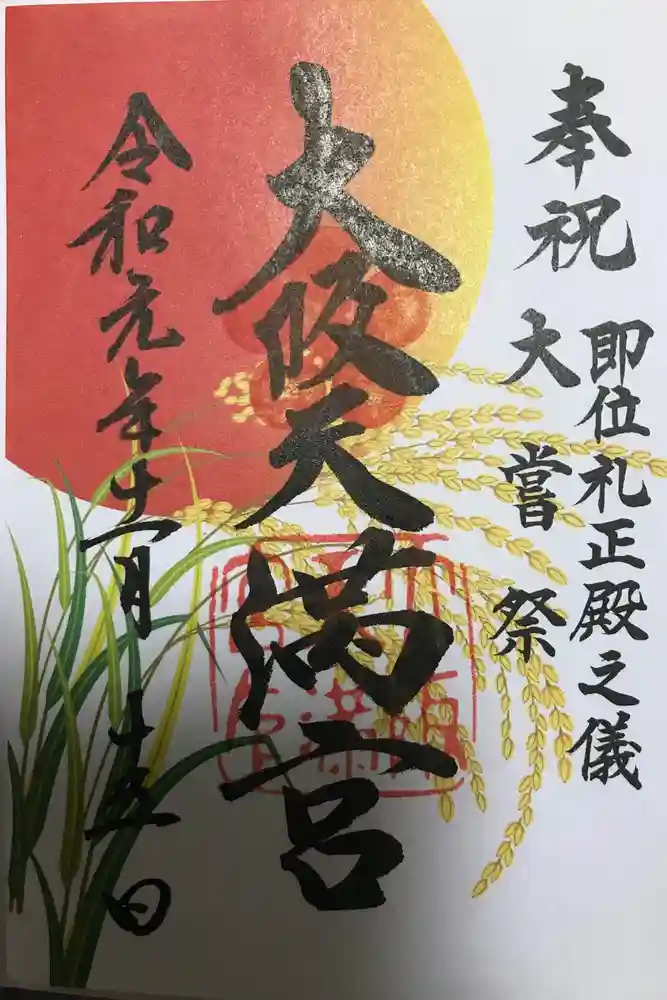 奉祝
即位礼正殿之儀
大嘗祭
大阪天満宮
令和元年十一月十五日
大阪天満宮